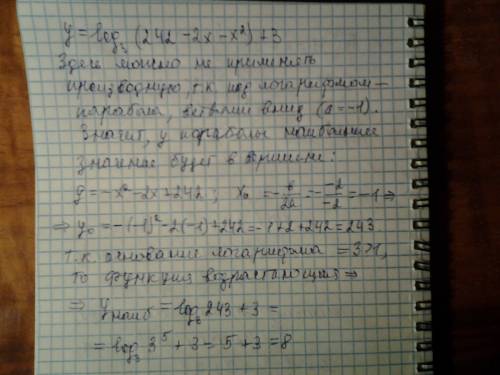 y = log₃ (242 - 2x - x²) + 3
Здесь можно не применять
производную, т.к. под логарифмом –
парабола, ветвями вниз (a = -1).
Значит, у параболы наибольшее
значение будет в вершине:
y = -x² - 2x + 242 ; x₀ = -b/2a = -(-2)/-2 = -1 ⇒
⇒ y₀ = -(-1)² - 2(-1) + 242 = -1 + 2 + 242 = 243
т.к. основание логарифма = 3>1,
то функция возрастающая ⇒
⇒ y наиб = log₃ 243 + 3 =
= log₃ 3⁵ + 3 = 5 + 3 = 8